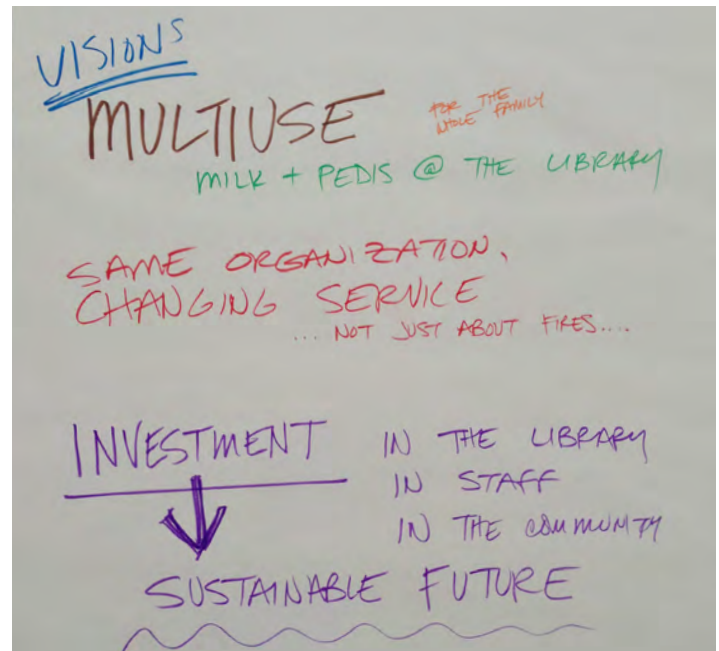 VISIONS
MULTIUSE
FOR THE
WHOLE FAMILY
MILK + PEDIS @ THE LIBRARY
SAME ORGANIZATION,
CHANGING SERVICE
... NOT JUST ABOUT FIRES....
INVESTMENT
IN THE LIBRARY
IN STAFF
IN THE COMMUNITY
SUSTAINABLE FUTURE